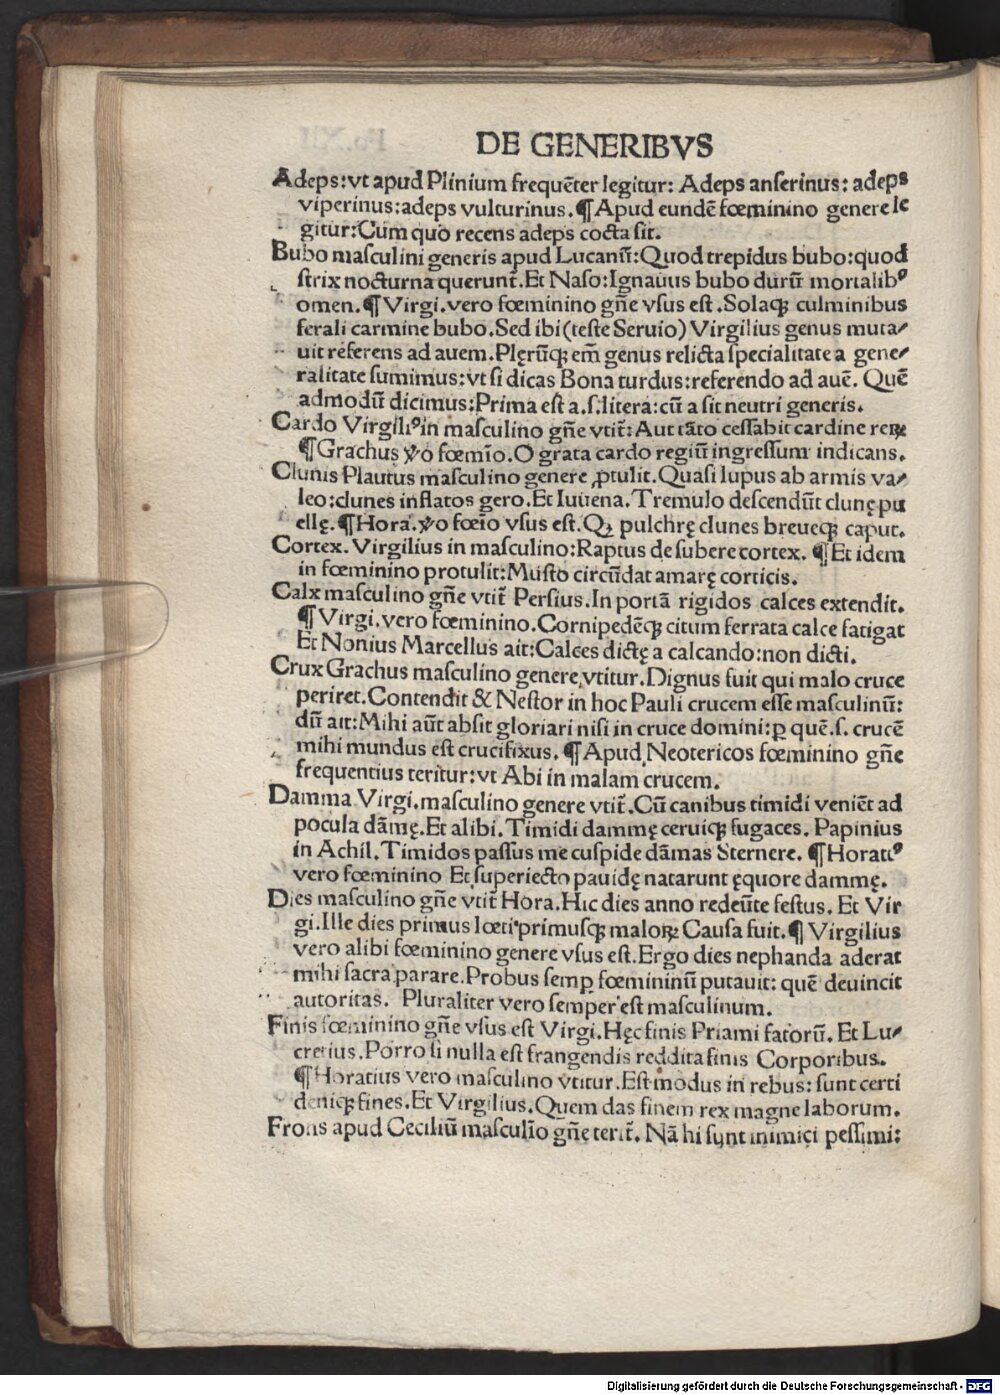 DE GENERIBVS
Adeps:vt apud Plinium frequẽter legitur: Adeps anserinus: adeps
viperinus:adeps vulturinus.¶Apud eundẽ fœminino genere le
gitur:Cum quo recens adeps cocta sit.
Bubo masculini generis apud Lucanũ:Quod trepidus bubo:quod
strix nocturna querunt̃.Et Naso:Ignauus bubo durũ mortalibꝰ
omen.¶Virgi.vero fœminino gñe vsus est.Solaqꝫ culminibus
ferali carmine bubo.Sed ibi(teste Seruio)Virgilius genus muta⸗
uit referens ad auem.Plęrũqꝫ em̃ genus relicta specialitate a gene⸗
ralitate sumimus:vt si dicas Bona turdus:referendo ad auẽ. Quẽ
admodũ dicimus:Prima est a.s.litera:cũ a sit neutri generis.
Cardo Virgiliꝰin masculino gñe vtit̃:Aut tãto cessabit cardine reꝝ
¶Grachus ꝟo fœmĩo.O grata cardo regiũ ingressum indicans.
Clunis Plautus masculino genere ꝓtulit.Quasi lupus ab armis va⸗
leo:clunes inflatos gero.Et Iuuena.Tremulo descendũt clunę pu
ellę.¶Hora.ꝟo foẽio vsus est.Qꝫ pulchrę clunes breueqꝫ caput.
Cortex.Virgilius in masculino:Raptus de subere cortex. ¶Et idem
in fœminino protulit:Musto circũdat amarę corticis.
Calx masculino gñe vtit̃ Persius.In portã rigidos calces extendit.
¶Virgi.vero fœminino.Cornipedẽqꝫ citum ferrata calce fatigat
Et Nonius Marcellus ait:Calces dictę a calcando:non dicti.
Crux Grachus masculino genere vtitur.Dignus fuit qui malo cruce
periret.Contendit & Nestor in hoc Pauli crucem esse masculinũ:
dũ ait:Mihi aũt absit gloriari nisi in cruce domini:ꝑ quẽ.s.crucẽ
mihi mundus est crucifixus.¶Apud Neotericos fœminino gñe
frequentius teritur:vt Abi in malam crucem.
Damma Virgi.masculino genere vtit̃.Cũ canibus timidi veniẽt ad
pocula dãmę.Et alibi.Timidi dammę ceruiqꝫ fugaces. Papinius
in Achil.Timidos passus me cuspide dãmas Sternere. ¶Horatiꝰ
vero fœminino Et superiecto pauidę natarunt ęquore dammę.
Dies masculino gñe vtit̃ Hora.Hic dies anno redeũte festus. Et Vir
gi.Ille dies primus lœti primusqꝫ maloꝝ Causa fuit.¶Virgilius
vero alibi fœminino genere vsus est.Ergo dies nephanda aderat
mihi sacra parare.Probus semꝑ fœmininũ putauit: quẽ deuincit
autoritas. Pluraliter vero semper est masculinum.
Finis fœminino gñe vsus est Virgi.Hęc finis Priami fatorũ.Et Lu⸗
cretius.Porro si nulla est frangendis reddita finis Corporibus.
¶Horatius vero masculino vtitur.Est modus in rebus: sunt certi
deniqꝫ fines.Et Virgilius.Quem das finem rex magne laborum.
Frons apud Ceciliũ masculĩo gñe terit̃. Nã hi sunt inimici pessimi:
Digitalisierung gefördert durch die Deutsche Forschungsgemeinschaft - DFG